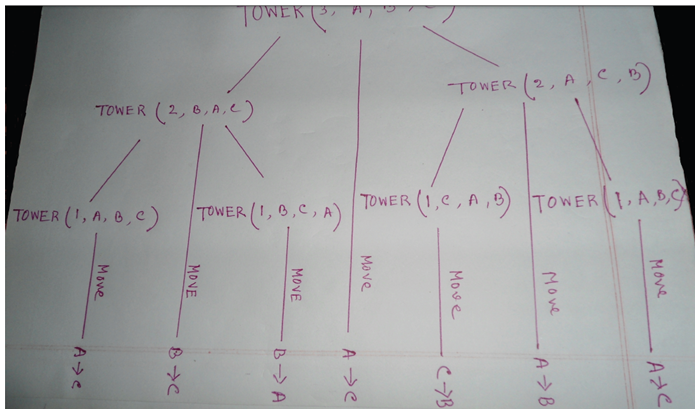 TOWER (3, A, B, C)
TOWER (2, A, C, B)
TOWER (2, B, A, C)
TOWER (1, A, B, C)
TOWER (1, B, C, A)
TOWER (1, C, A, B)
TOWER (1, A, B, C)
MOVE
MOVE
MOVE
MOVE
MOVE
MOVE
MOVE
A → C
B → C
B → A
A → C
C → B
A → B
A → C